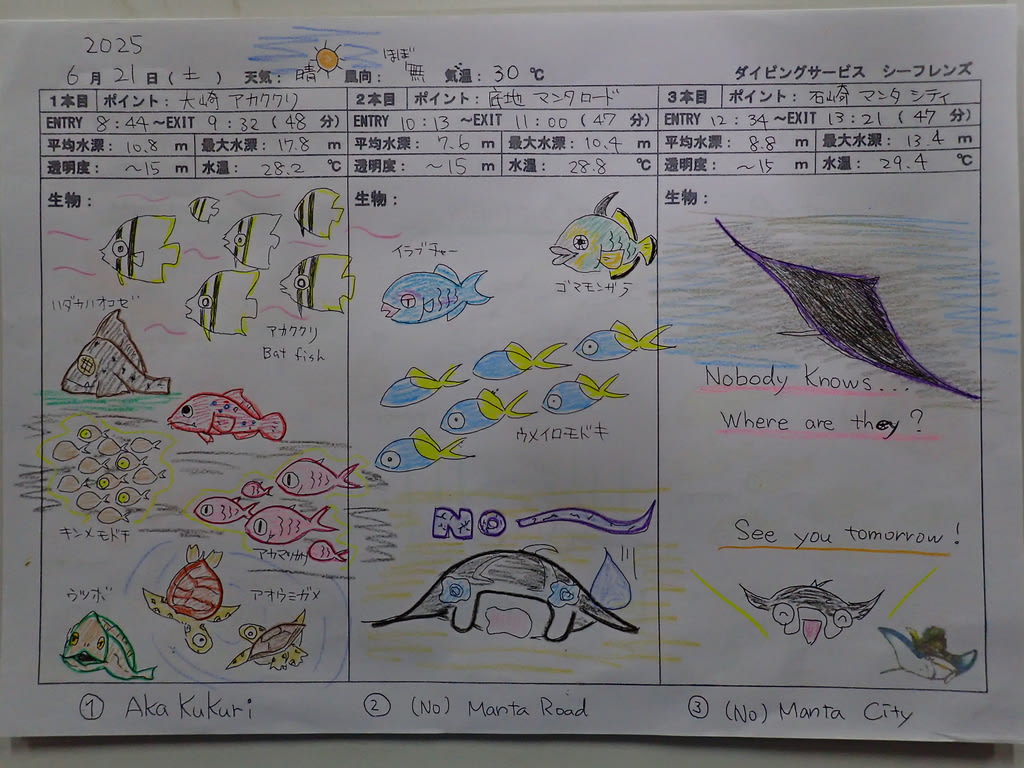 2025
6月21日(土) 天気:晴 風向:ほぼ無 気温:30℃ ダイビングサービス シーフレンズ
1本目 ポイント:大崎 アカククリ
ENTRY 8:44~EXIT 9:32(48分)
平均水深:10.8m 最大水深:17.8m
透明度:~15m 水温:28.2℃
生物:
ハダカハオコゼ
アカククリ
Bat fish
キンメモドキ
アカマツカサ
ウツボ
アオウミガメ
① Aka Kukuri
2本目 ポイント:底地 マンタロード
ENTRY 10:13~EXIT 11:00(47分)
平均水深:7.6m 最大水深:10.4m
透明度:~15m 水温:28.8℃
生物:
イラブチャー
ゴマモンガラ
ウメイロモドキ
No
② (No) Manta Road
3本目 ポイント:石崎 マンタ シティ
ENTRY 12:34~EXIT 13:21(47分)
平均水深:8.8m 最大水深:13.4m
透明度:~15m 水温:29.4℃
生物:
Nobody Knows...
Where are they?
See you tomorrow!
③ (No) Manta City